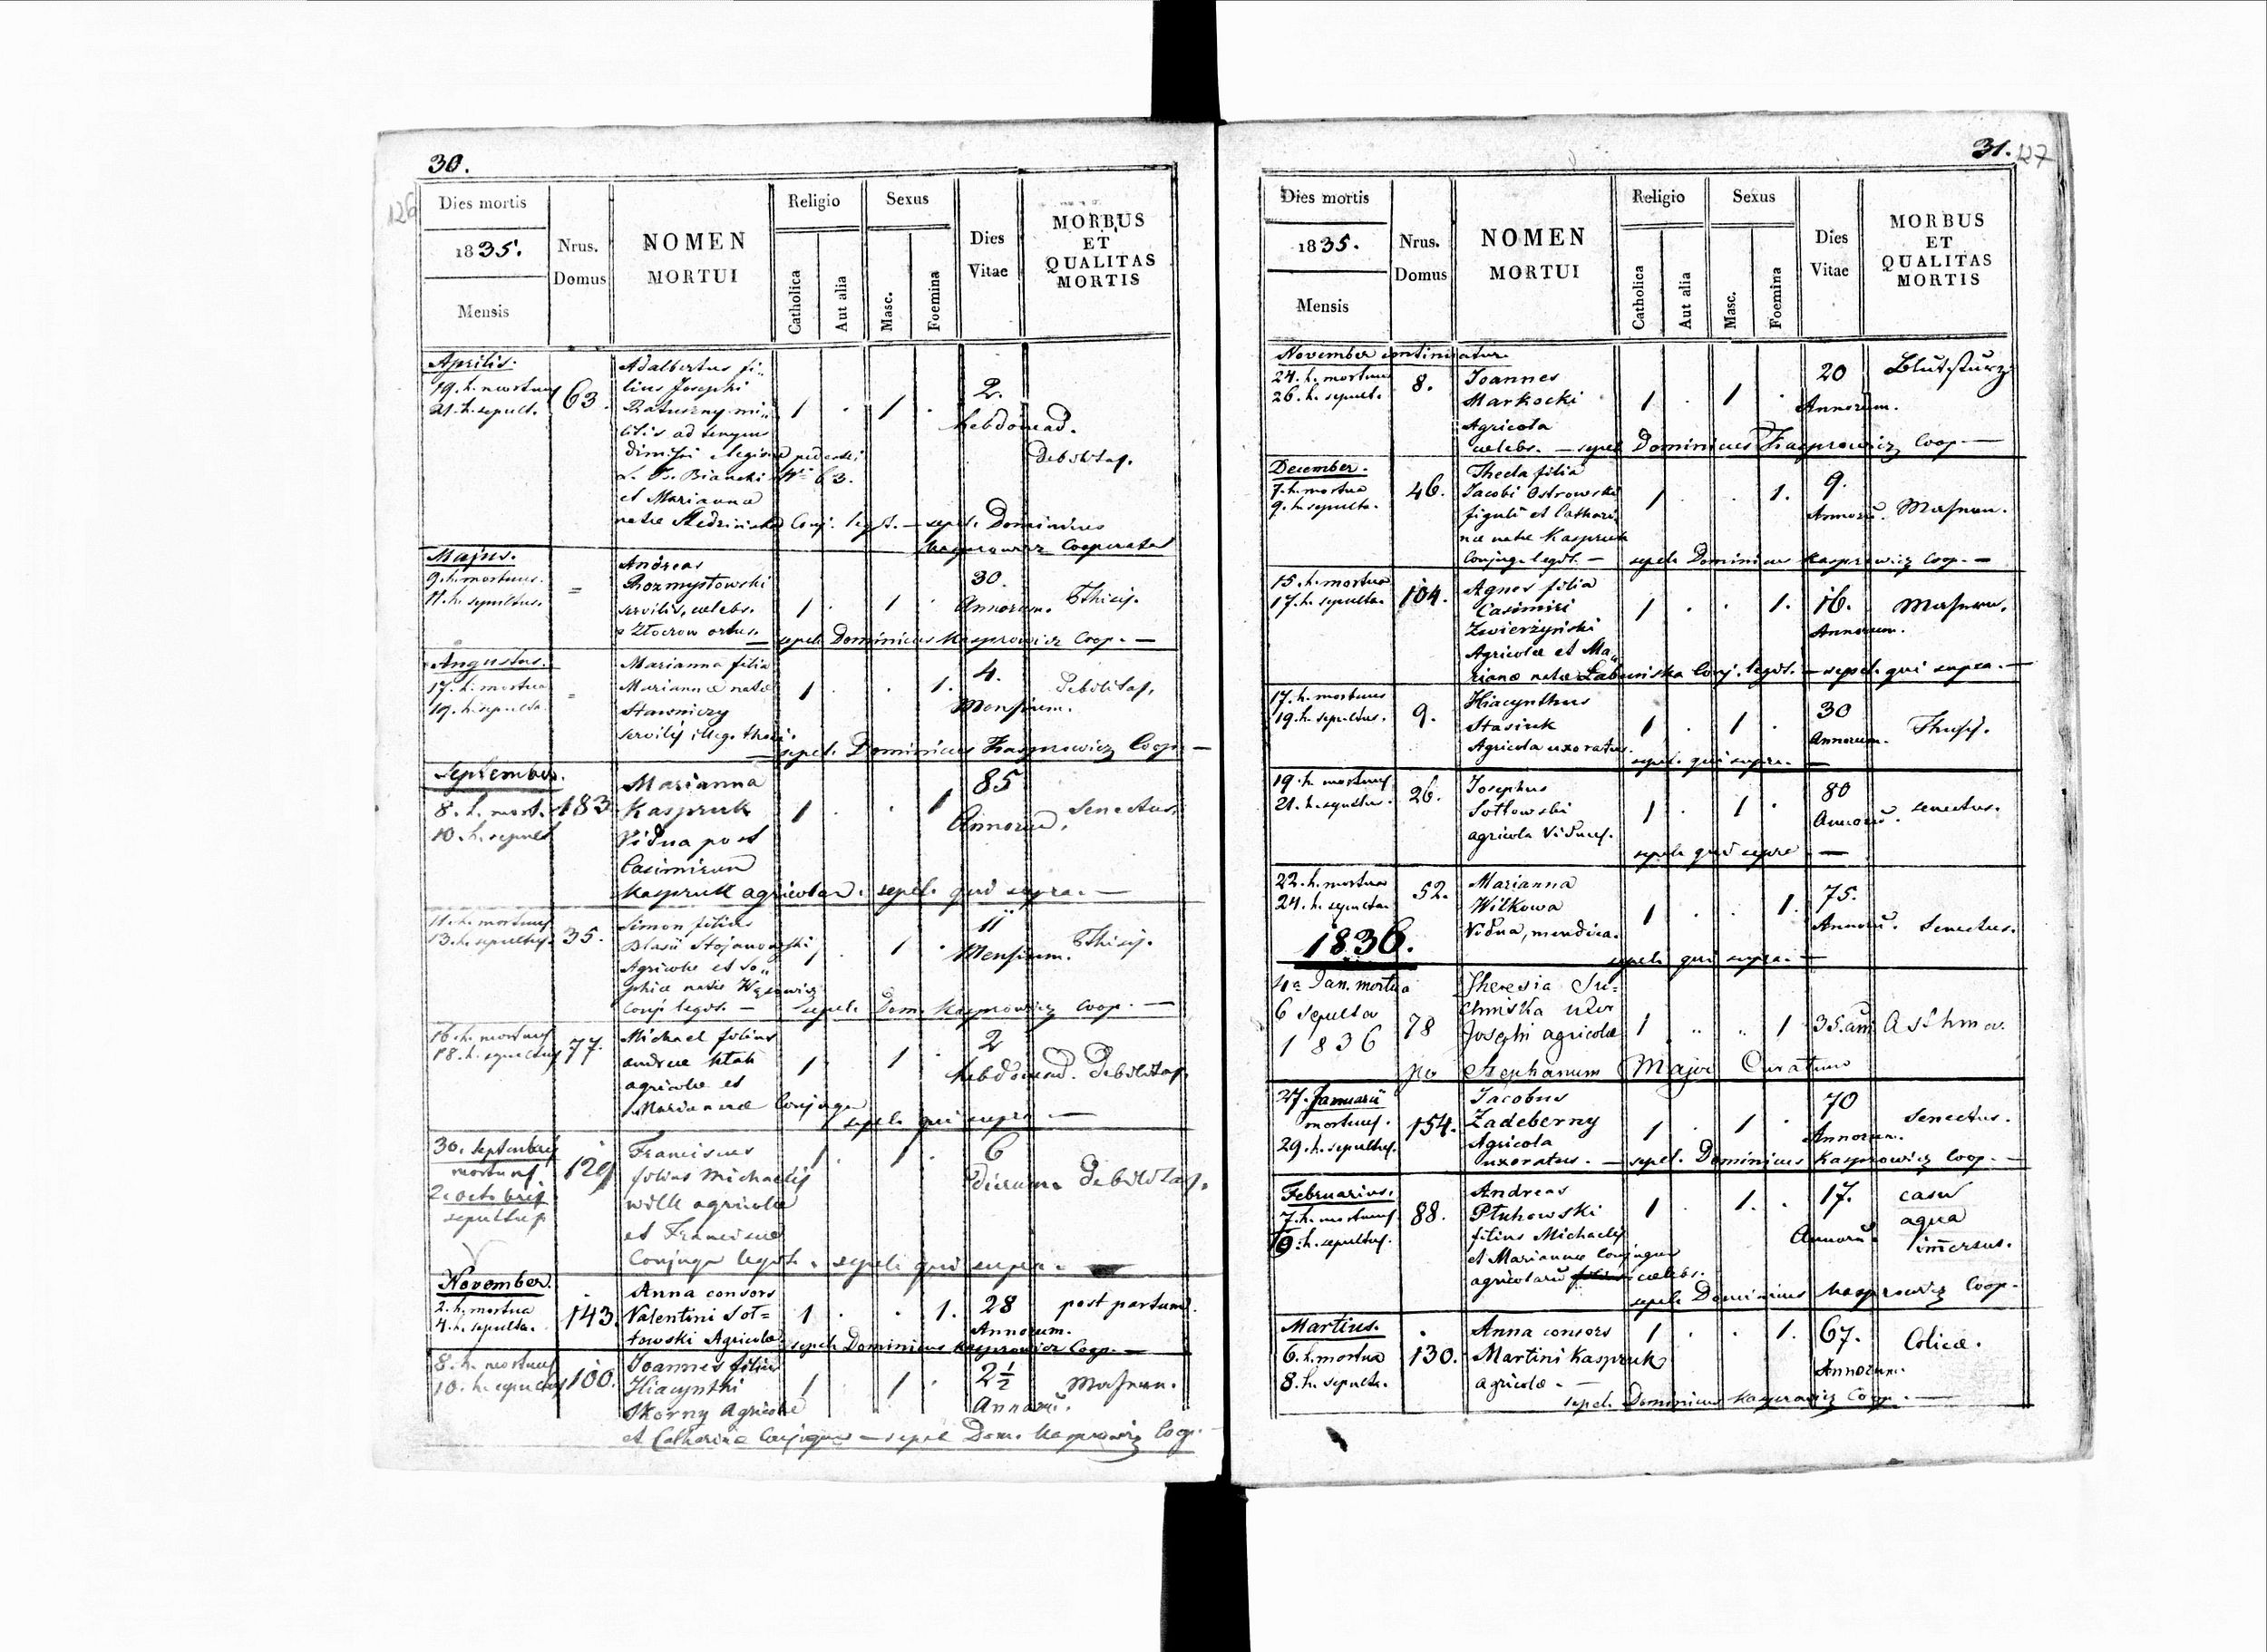 30.
126
Dies mortis
1835.
Mensis
Nrus.
Domus
NOMEN
MORTUI
Religio
Catholica
Aut alia
Sexus
Masc.
Foemina
Dies
Vitae
MORBUS
ET
QUALITAS
MORTIS
Aprilis.
19. h. mortuus
21. h. sepult.
63.
Adalbertus fi„
lius Josephi
Ratuszny mi„
litis ad tempus
dimissi Legione pedestri
Bianchi Nr. 63.
et Marianna
natae Conj. legit. — sepel. Dominicus
Kasprowicz Cooperator
1 . 1 .
2.
hebdomad.
Debilitas.
Majus.
9. h. mortuus.
11. h. sepultus.
=
Andreas
Rozmysłowski
servilis, caelebs.
e Złoczow ortus.
1 . 1 .
30.
Annorum.
Pthisis.
— sepel. Dominicus Kasprowicz Coop. —
Augustus.
17. h. mortua
19. h. sepulta
=
Marianna filia
Mariannae natae
Stawniczy
servilis illeg. thori.
1 . . 1.
4.
Mensium.
Debilitas.
— sepel. Dominicus Kasprowicz Coop. —
September.
8. h. mort.
10. h. sepult.
183
Marianna
Kaspruk
Vidua post
Casimirum
Kaspruk agricolam. sepel. qui supra. —
1 . . 1
85
Annorum.
Senectus.
11. h. mortuus
13. h. sepultus.
35.
Simon filius
Blasii Stojanowski
Agricolae et So„
phiae natae Wąsowicz
Conj. legit. — sepel. Dom. Kasprowicz Coop. —
1 . 1 .
11
Mensium.
Pthisis.
16. h. mortuus
18. h. sepultus
77.
Michael filius
Andreae
agricolae et
Mariannae Conjugum
sepel. qui supra —
1 . 1 .
2
hebdomad.
Debilitas.
30. Septembris
mortuus
2. octobris
sepultus
129
Franciscus
filius Michaelis
Wilk agricolae
et Franciscae
Conjugum legit. sepel. qui supra.
1 . 1 .
6
dierum.
Debilitas.
November.
2. h. mortua
4. h. sepulta.
143.
Anna consors
Valentini Sot=
towski Agricolae
1 . . 1.
28
Annorum.
post partum.
sepel. Dominicus Kasprowicz Coop. —
8. h. mortuus
10. h. sepultus
100.
Joannes filius
Hiacynthi
Skorny Agricolae
et Catharinae Conjugum — sepel. Dom. Kasprowicz Coop.
1 . 1 .
2½
Annorum.
31.
127
Dies mortis
1835.
Mensis
Nrus.
Domus
NOMEN
MORTUI
Religio
Catholica
Aut alia
Sexus
Masc.
Foemina
Dies
Vitae
MORBUS
ET
QUALITAS
MORTIS
November continuatur.
24. h. mortuus
26. h. sepult.
8.
Joannes
Markocki
Agricola
caelebs. — sepel. Dominicus Kasprowicz Coop. —
1 . 1 .
20
Annorum.
Blutsturz
December.
7. h. mortua
9. h. sepulta.
46.
Thecla filia
Jacobi Ostrowski
figuli et Cathari„
nae natae Kaspruk
Conjug. legit. — sepel. Dominicus Kasprowicz Coop. —
1 . . 1.
9.
Annorũ.
15. h. mortua
17. h. sepulta.
104.
Agnes filia
Casimiri
Zwierzyński
Agricolae et Ma„
rianae natae Łabuńska Conj. legit. — sepel. qui supra. —
1 . . 1.
16.
Annorum.
17. h. mortuus
19. h. sepultus.
9.
Hiacynthus
Stasiuk
Agricola uxoratus.
sepel. qui supra. —
1 . 1 .
30
Annorum.
19. h. mortuus
21. h. sepultus.
26.
Josephus
Sottowski
agricola Viduus.
sepel. qui supra —
1 . 1 .
80
Annorũ.
senectus.
22. h. mortua
24. h. sepulta.
52.
Marianna
Wilkowa
Vidua, mendica.
sepel. qui supra. —
1 . . 1.
75.
Annorũ.
Senectus.
1836.
4a Jan. mortua
6 Sepulta
1836
78
Theresia Su=
chmiska uxor
Josephi agricolae
per Stephanum Major Curatum
1 „ „ 1
35. ann
Asthma.
27. Januarii
mortuus.
29. h. sepultus.
154.
Jacobus
Zadeberny
Agricola
uxoratus. — sepel. Dominicus Kasprowicz Coop. —
1 . 1 .
70
Annorum.
Senectus.
Februarius.
7. h. mortuus
10. h. sepultus.
88.
Andreas
Ptuhowski
filius Michaelis
et Mariannae Conjugum
agricolarũ caelebs.
sepel. Dominicus Kasprowicz Coop.
1 . 1. .
17.
Annorũ.
casu
aqua
im̃ersus.
Martius.
6. h. mortua
8. h. sepulta.
130.
Anna consors
Martini Kaspruk
agricolae. —
sepel. Dominicus Kasprowicz Coop. —
1 . . 1.
67.
Annorum.
Colica.